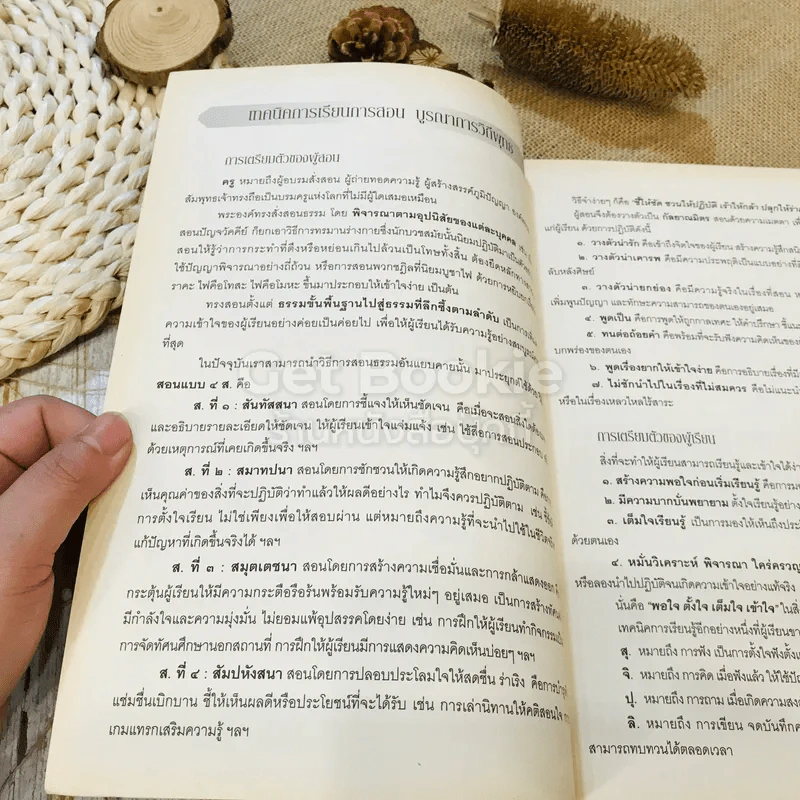 เทคนิคการเรียนการสอน บูรณาการวิถีพุทธ
การเตรียมตัวของผู้สอน
ครู หมายถึงผู้อบรมสั่งสอน ผู้ถ่ายทอดความรู้ ผู้สร้างสรรค์ภูมิปัญญา
สัมพุทธเจ้าทรงถือเป็นบรมครูแห่งโลกที่ไม่มีผู้ใดเสมอเหมือน
พระองค์ทรงสั่งสอนธรรม โดย พิจารณาตามอุปนิสัยของแต่ละบุคคล
สอนปัญจวัคคีย์ ก็ยกเอาวิธีการทรมานร่างกายซึ่งนักบวชสมัยนั้นนิยมปฏิบัติมาเป็นตัว
สอนให้รู้ว่าการกระทำที่ตึงหรือหย่อนเกินไปล้วนเป็นโทษทั้งสิ้น ต้องยึดหลักทาง
ใช้ปัญญาพิจารณาอย่างถี่ถ้วน หรือการสอนพวกชฎิลที่นิยมบูชาไฟ ด้วยการหยิบยก
ราคะ ไฟคือโทสะ ไฟคือโมหะ ขึ้นมาประกอบให้เข้าใจง่าย เป็นต้น
ทรงสอนตั้งแต่ ธรรมขั้นพื้นฐานไปสู่ธรรมที่ลึกซึ้งตามลำดับ เป็นการ
ความเข้าใจของผู้เรียนอย่างค่อยเป็นค่อยไป เพื่อให้ผู้เรียนได้รับความรู้อย่างสมบูรณ์
ที่สุด
ในปัจจุบันเราสามารถนำวิธีการสอนธรรมอันแยบคายนั้น มาประยุกต์ใช้
สอนแบบ ๔ ส. คือ
ส. ที่ ๑ : สันทัสสนา สอนโดยการชี้แจงให้เห็นชัดเจน คือเมื่อจะสอนสิ่งใดต้อง
และอธิบายรายละเอียดให้ชัดเจน ให้ผู้เรียนเข้าใจแจ่มแจ้ง เช่น ใช้สื่อการสอนประกอบ
ด้วยเหตุการณ์ที่เคยเกิดขึ้นจริง ฯลฯ
ส. ที่ ๒ : สมาทปนา สอนโดยการชักชวนให้เกิดความรู้สึกอยากปฏิบัติตาม คือ
เห็นคุณค่าของสิ่งที่จะปฏิบัติว่าทำแล้วให้ผลดีอย่างไร ทำไมจึงควรปฏิบัติตาม เช่น
การตั้งใจเรียน ไม่ใช่เพียงเพื่อให้สอบผ่าน แต่หมายถึงความรู้ที่จะนำไปใช้ในชีวิต
แก้ปัญหาที่เกิดขึ้นจริงได้ ฯลฯ
ส. ที่ ๓ : สมุตเตชนา สอนโดยการสร้างความเชื่อมั่นและการกล้าแสดงออก
กระตุ้นผู้เรียนให้มีความกระตือรือร้นพร้อมรับความรู้ใหม่ๆ อยู่เสมอ เป็นการสร้าง
มีกำลังใจและความมุ่งมั่น ไม่ยอมแพ้อุปสรรคโดยง่าย เช่น การฝึกให้ผู้เรียนทำกิจกรรม
การจัดทัศนศึกษานอกสถานที่ การฝึกให้ผู้เรียนมีการแสดงความคิดเห็นบ่อยๆ ฯลฯ
ส. ที่ ๔ : สัมปหังสนา สอนโดยการปลอบประโลมใจให้สดชื่น ร่าเริง คือการ
แช่มชื่นเบิกบาน ชี้ให้เห็นผลดีหรือประโยชน์ที่จะได้รับ เช่น การเล่านิทานให้คติสอนใจ
เกมแทรกเสริมความรู้ ฯลฯ
วิธีจำง่ายๆ ก็คือ "ชี้ให้ชัด ชวนให้ปฏิบัติ เร้าให้กล้า ปลุกให้
ผู้สอนจึงต้องวางตัวเป็น กัลยาณมิตร สอนด้วยความเมตตา
แก่ผู้เรียน ด้วยการปฏิบัติดังนี้
๑. วางตัวน่ารัก คือเข้าถึงจิตใจของผู้เรียน สร้างความรู้สึก
๒. วางตัวน่าเคารพ คือมีความประพฤติเป็นแบบอย่าง
ลับหลังศิษย์
๓. วางตัวน่ายกย่อง คือมีความรู้จริงในเรื่องที่สอน
เพิ่มพูนปัญญา และทักษะความสามารถของตนเองอยู่เสมอ
๔. พูดเป็น คือการพูดให้ถูกกาลเทศะ ให้คำปรึกษา
๕. ทนต่อถ้อยคำ คือพร้อมที่จะรับฟังความคิดเห็นของ
บกพร่องของตนเอง
๖. พูดเรื่องยากให้เข้าใจง่าย คือการอธิบายเรื่องที่
๗. ไม่ชักนำไปในเรื่องที่ไม่สมควร คือไม่แนะนำ
หรือในเรื่องเหลวไหลไร้สาระ
การเตรียมตัวของผู้เรียน
สิ่งที่จะทำให้ผู้เรียนสามารถเรียนรู้และเข้าใจได้
๑. สร้างความพอใจก่อนเริ่มเรียนรู้ คือการ
๒. มีความบากบั่นพยายาม ตั้งใจเรียนรู้อย่าง
๓. เต็มใจเรียนรู้ เป็นการมองให้เห็นถึงประ
ด้วยตนเอง
๔. หมั่นวิเคราะห์ พิจารณา ใคร่ครวญ
หรือลองนำไปปฏิบัติจนเกิดความเข้าใจอย่างแท้จริง
นั่นคือ "พอใจ ตั้งใจ เต็มใจ เข้าใจ" ใน
เทคนิคการเรียนรู้อีกอย่างหนึ่งที่ผู้เรียน
สุ. หมายถึง การฟัง เป็นการตั้งใจฟังตั้งแต่
จิ. หมายถึง การคิด เมื่อฟังแล้ว ให้ใช้
ปุ. หมายถึง การถาม เมื่อเกิดความสง
ลิ. หมายถึง การเขียน จดบันทึก
สามารถทบทวนได้ตลอดเวลา
Get Bookie
ร้านหนังสือลุงโต้